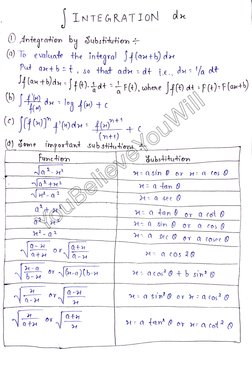 ∫ INTEGRATION dx
① Integration by Substitution :-
(a) To evaluate the integral ∫f(ax+b)dx
Put ax+b = t, so that adx = dt i.e., dx = 1/a dt
∫f(ax+b)dx = ∫f(t).1/a dt = 1/a F(t), where ∫f(t) dt = F(t) = F(ax+b)
(b) ∫ f'(x)/f(x) dx = log f(x) + c
(c) ∫[f(x)]ⁿ f'(x)dx = f(x)ⁿ⁺¹/(n+1) + C
(d) Some important substitutions :-
Function Substitution
√a²-x² x = a sin θ or x = a cos θ
√a²+x² x = a tan θ
√x²-a² x = a sec θ
a²+x² x = a tan θ or a cot θ
a²-x² x = a sin θ or a cos θ
x²-a² x = a sec θ or a cosec θ
√a-x/a+x or √a+x/a-x x = a cos 2θ
√x-a/b-x or √(x-a)(b-x) x = a cos²θ + b sin²θ
√x/a-x or √a-x/x x = a sin²θ or x = a cos²θ
√x/a+x or √a+x/x x = a tan²θ or x = a cot²θ
YouBelieveYouWill